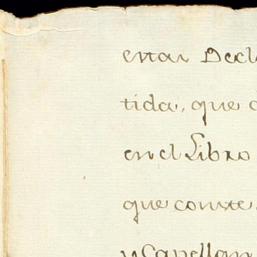 estar Decl
tida, que
en el Libro
que conste
y Capellan